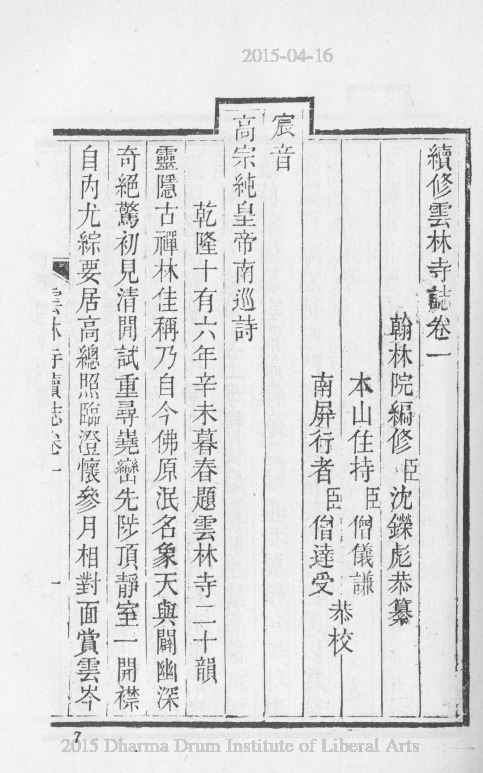 2015-04-16
續修雲林寺誌卷一
翰林院編修臣沈鑅彪恭纂
本山住持臣僧儀謙
南屏行者臣僧達受
恭校
宸音
高宗純皇帝南巡詩
乾隆十有六年辛未暮春題雲林寺二十韻
靈隱古禪林佳稱乃自今佛原泯名象天與闢幽深
奇絕驚初見清閒試重尋嶤巒先陟頂靜室一開襟
自內尤綜要居高總照臨澄懷參月相對面賞雲岑
雲林寺續誌卷一
一
7
2015 Dharma Drum Institute of Liberal Arts